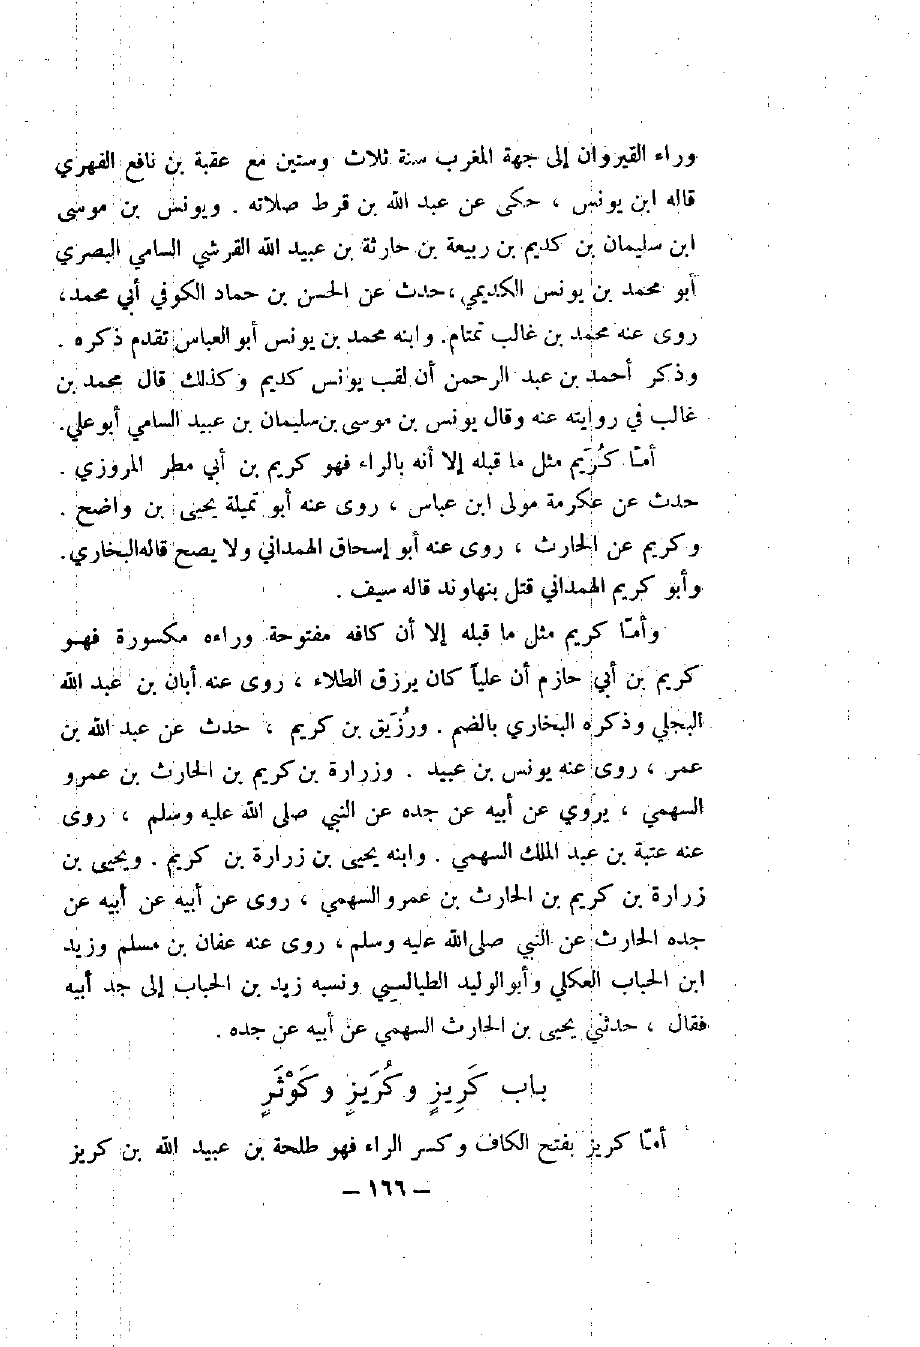 وراء القيروان إلى جهة المغرب سنة ثلاث وستين مع عقبة بن نافع الفهري
قاله ابن يونس ، حكى عن عبد الله بن قرط صلاته . ويونس بن موسى
ابن سليمان بن كديم بن ربيعة بن حارثة بن عبيد الله القرشي السامي البصري
أبو محمد بن يونس الكديمي ، حدث عن الحسن بن حماد الكوفي أبي محمد ،
روى عنه محمد بن غالب تمتام. وابنه محمد بن يونس أبو العباس تقدم ذكره .
وذكر أحمد بن عبد الرحمن أن لقب يونس كديم وكذلك قال محمد بن
غالب في روايته عنه وقال يونس بن موسى بن سليمان بن عبيد السامي أبو علي.
أمّا كُرَيم مثل ما قبله إلا أنه بالراء فهو كريم بن أبي مطر المروزي .
حدث عن عكرمة مولى ابن عباس ، روى عنه أبو تميلة يحيى بن واضح .
وكريم عن الحارث ، روى عنه أبو إسحاق الهمداني ولا يصح قاله البخاري.
وأبو كريم الهمداني قتل بنهاوند قاله سيف .
وأمّا كريم مثل ما قبله إلا أن كافه مفتوحة وراءه مكسورة فهو
كريم بن أبي حازم أن علياً كان يرزق الطلاء ، روى عنه أبان بن عبد الله
البجلي وذكره البخاري بالضم . ورُزَيق بن كريم ، حدث عن عبد الله بن
عمر ، روى عنه يونس بن عبيد . وزرارة بن كريم بن الحارث بن عمرو
السهمي ، يروي عن أبيه عن جده عن النبي صلى الله عليه وسلم ، روى
عنه عتبة بن عبد الملك السهمي . وابنه يحيى بن زرارة بن كريم . ويحيى بن
زرارة بن كريم بن الحارث بن عمرو السهمي ، روى عن أبيه عن أبيه عن
جده الحارث عن النبي صلى الله عليه وسلم ، روى عنه عفان بن مسلم وزيد
ابن الحباب العكلي وأبو الوليد الطيالسي ونسبه زيد بن الحباب إلى جد أبيه
فقال ، حدثني يحيى بن الحارث السهمي عن أبيه عن جده .
باب كَرِيزٍ وكُرَيزٍ وكَوْثَرٍ
أمّا كريز بفتح الكاف وكسر الراء فهو طلحة بن عبيد الله بن كريز
– ١٦٦ –